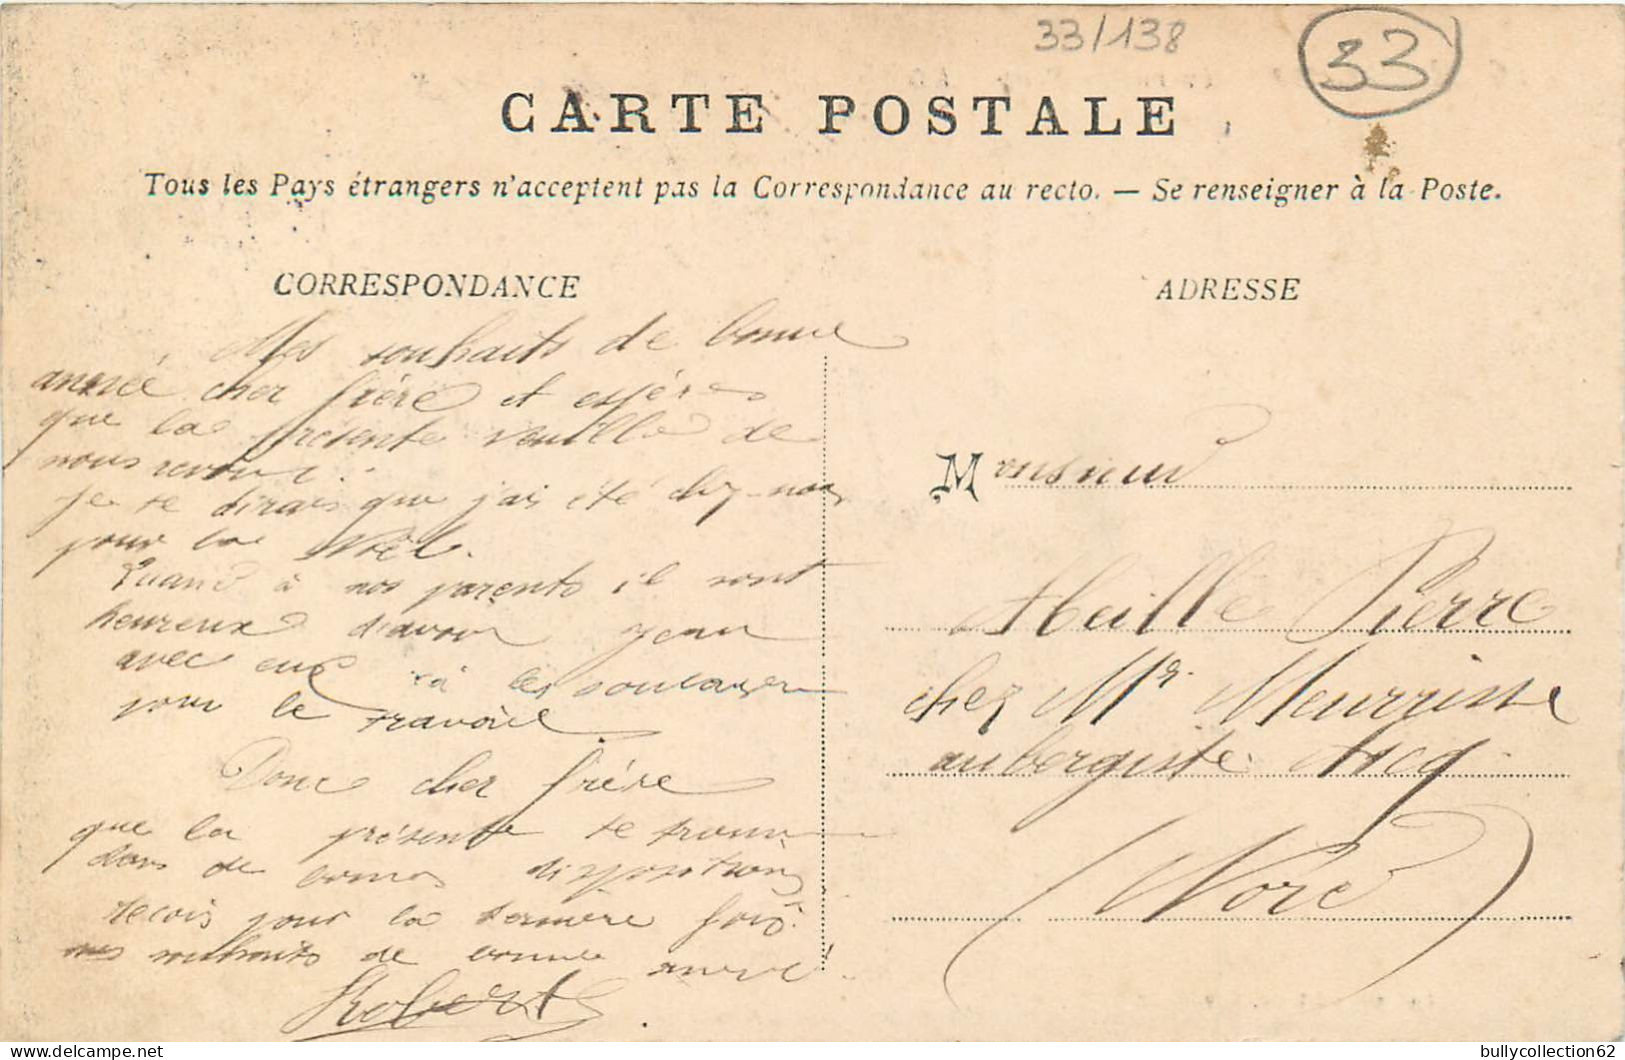 33/138
33
CARTE POSTALE
Tous les Pays étrangers n'acceptent pas la Correspondance au recto. — Se renseigner à la Poste.
CORRESPONDANCE
ADRESSE
Mes souhaits de bonne
année cher frère et espère
que la présente veuille de
nous revoir.
Je te dirais que j'ai été chez nous
pour la Noël.
Quand à nos parents il sont
heureux d'avoir Jean
avec eux à les soulager
pour le travail
Donc cher frère
que la présente te trouve
dans de bonnes dispositions
recois pour la dernière fois
mes souhaits de bonne année.
Robert
Monsieur
Abeille Pierre
chez Mr Meurrisse
aubergiste Ascq
(Nord)
bullycollection62